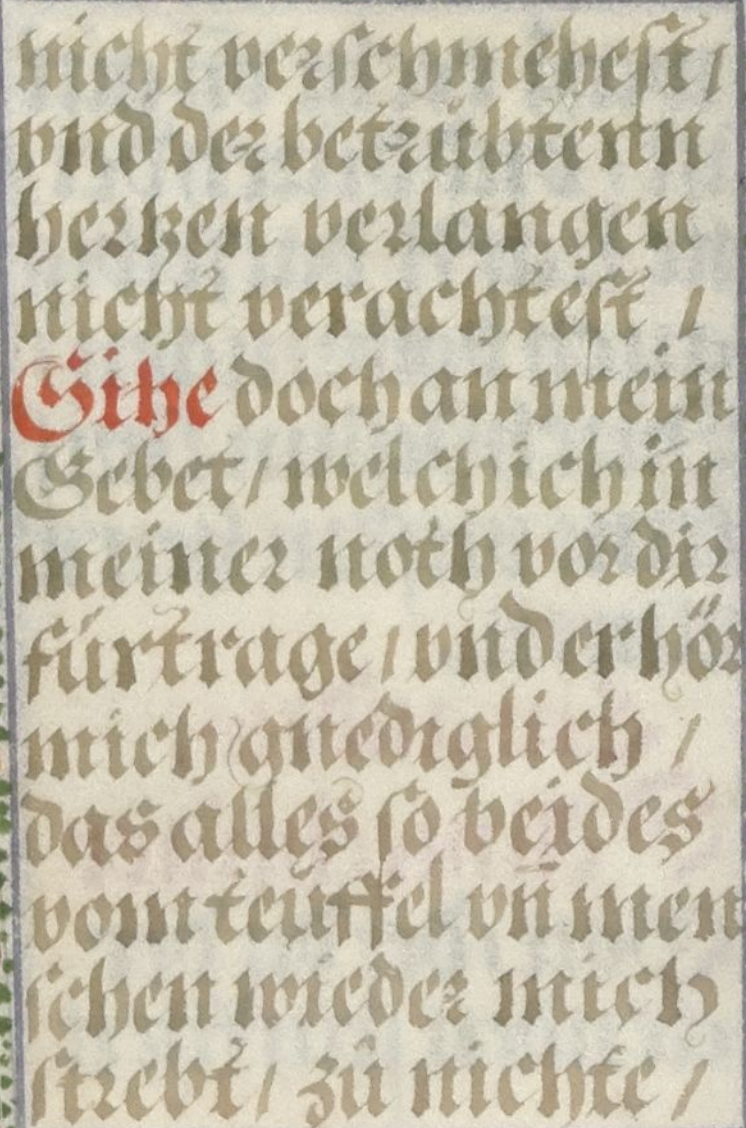 nicht verschmehest /
vnd der betrübtenn
hertzen verlangen
nicht verachtest /
Sihe doch an mein
Gebet / welch ich in
meiner noth vor dir
fürtrage / vnd erhör
mich gnediglich /
das alles so beides
vom teuffel vn̄ men
schen wieder mich
strebt / zu nichte /